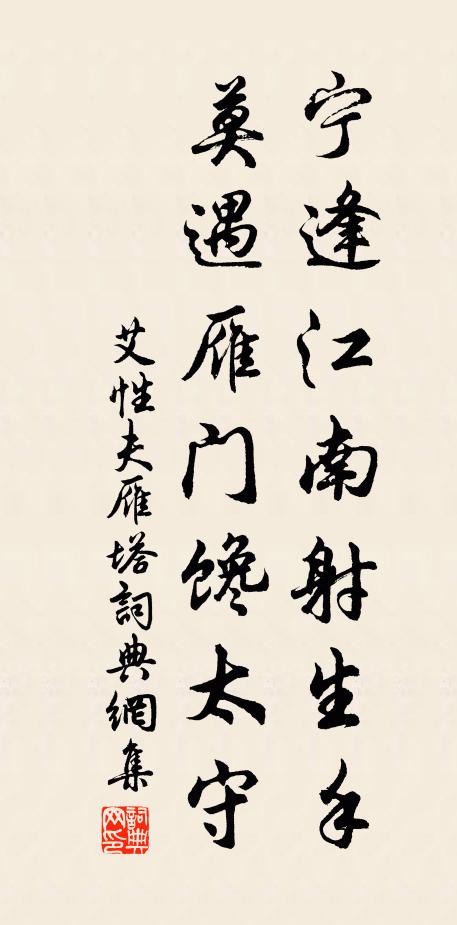 宁逢江南射生手
莫遇雁门馋太守
艾性夫雁塔詞典網集
詞典网印